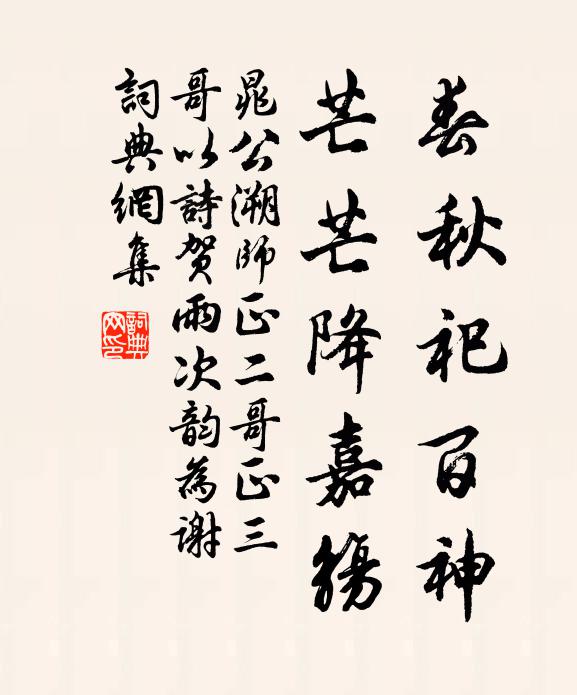 春秋祀百神
芒芒降嘉觴
晁公溯師正二哥正三
哥以詩賀雨次韵為謝
詞典網集
詞典
网印